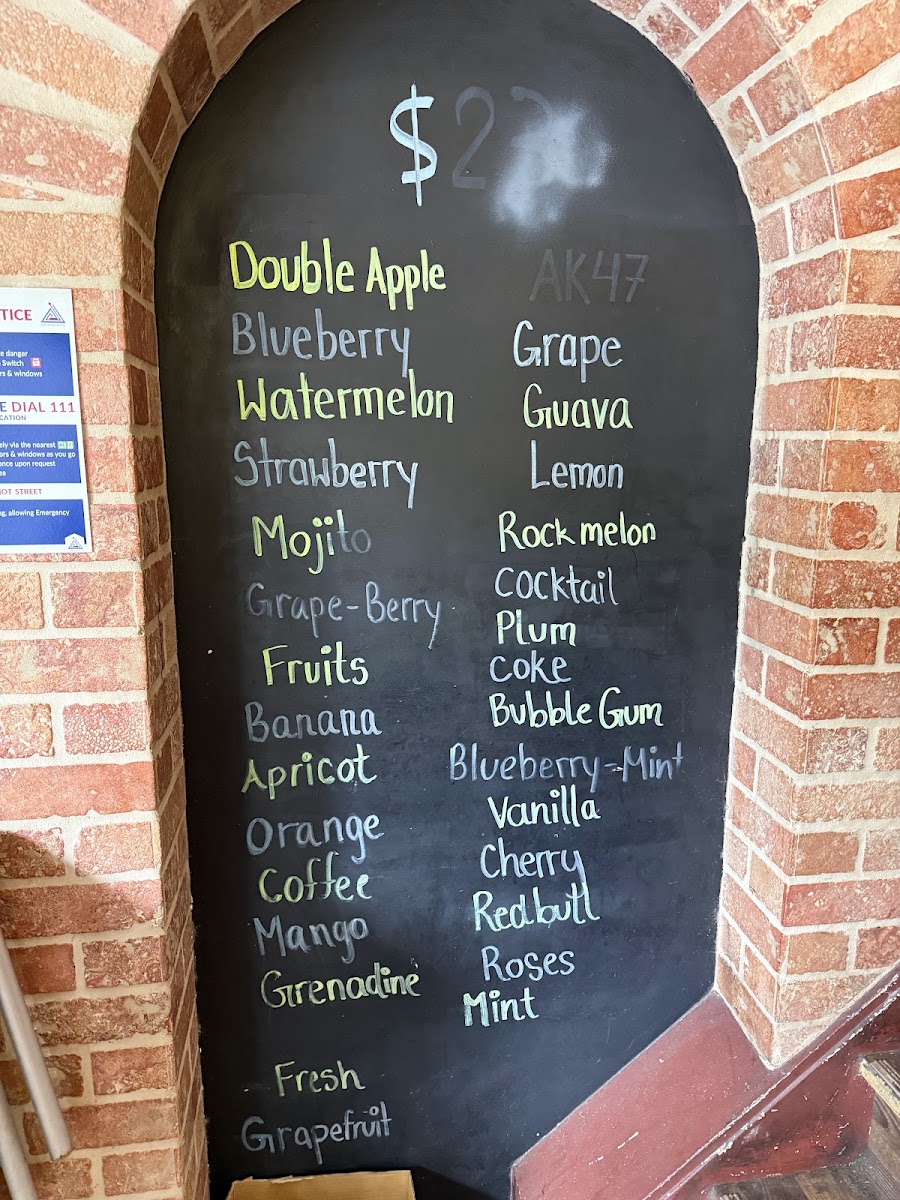 $2
Double Apple
Blueberry
Watermelon
Strawberry
Mojito
Grape-Berry
Fruits
Banana
Apricot
Orange
Coffee
Mango
Grenadine
Fresh
Grapefruit
AK47
Grape
Guava
Lemon
Rock melon
Cocktail
Plum
Coke
Bubble Gum
Blueberry-Mint
Vanilla
Cherry
Redbull
Roses
Mint
TICE
e danger
Switch
rs & windows
E DIAL 111
CATION
ely via the nearest
ors & windows as you go
ance upon request
ea
OT STREET
ng, allowing Emergency